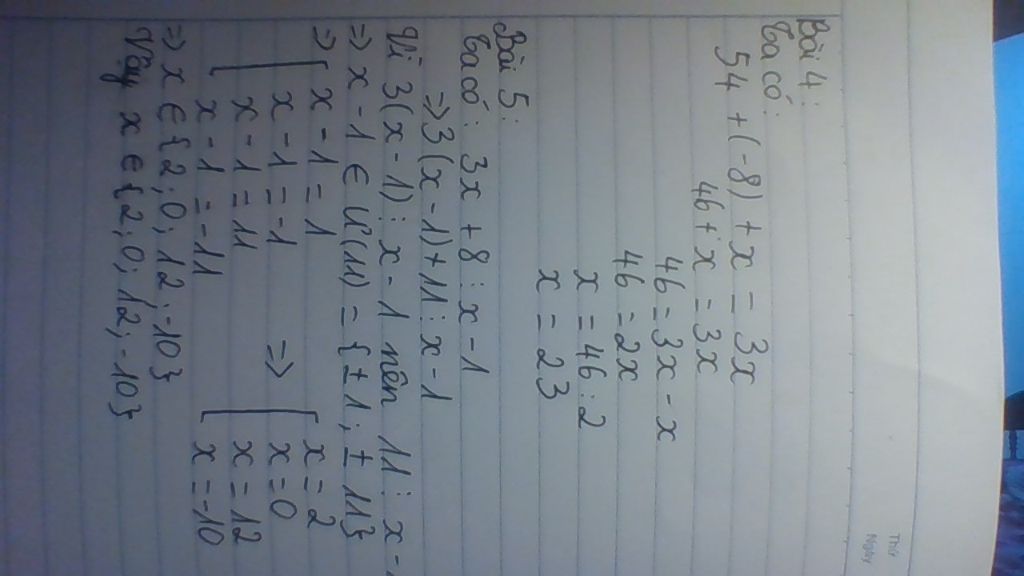 Thứ
Ngày
Bài 4:
Ta có:
54 + (-8) + x = 3x
46 + x = 3x
46 = 3x - x
46 = 2x
x = 46 : 2
x = 23
Bài 5:
Ta có: 3x + 8 ⋮ x - 1
=> 3(x - 1) + 11 ⋮ x - 1
Vì 3(x - 1) ⋮ x - 1 nên 11 ⋮ x -
=> x - 1 ∈ Ư(11) = {±1; ±11}
=> [ x - 1 = 1 => [ x = 2
x - 1 = -1 x = 0
x - 1 = 11 x = 12
x - 1 = -11 x = -10
=> x ∈ {2; 0; 12; -10}
Vậy x ∈ {2; 0; 12; -10}